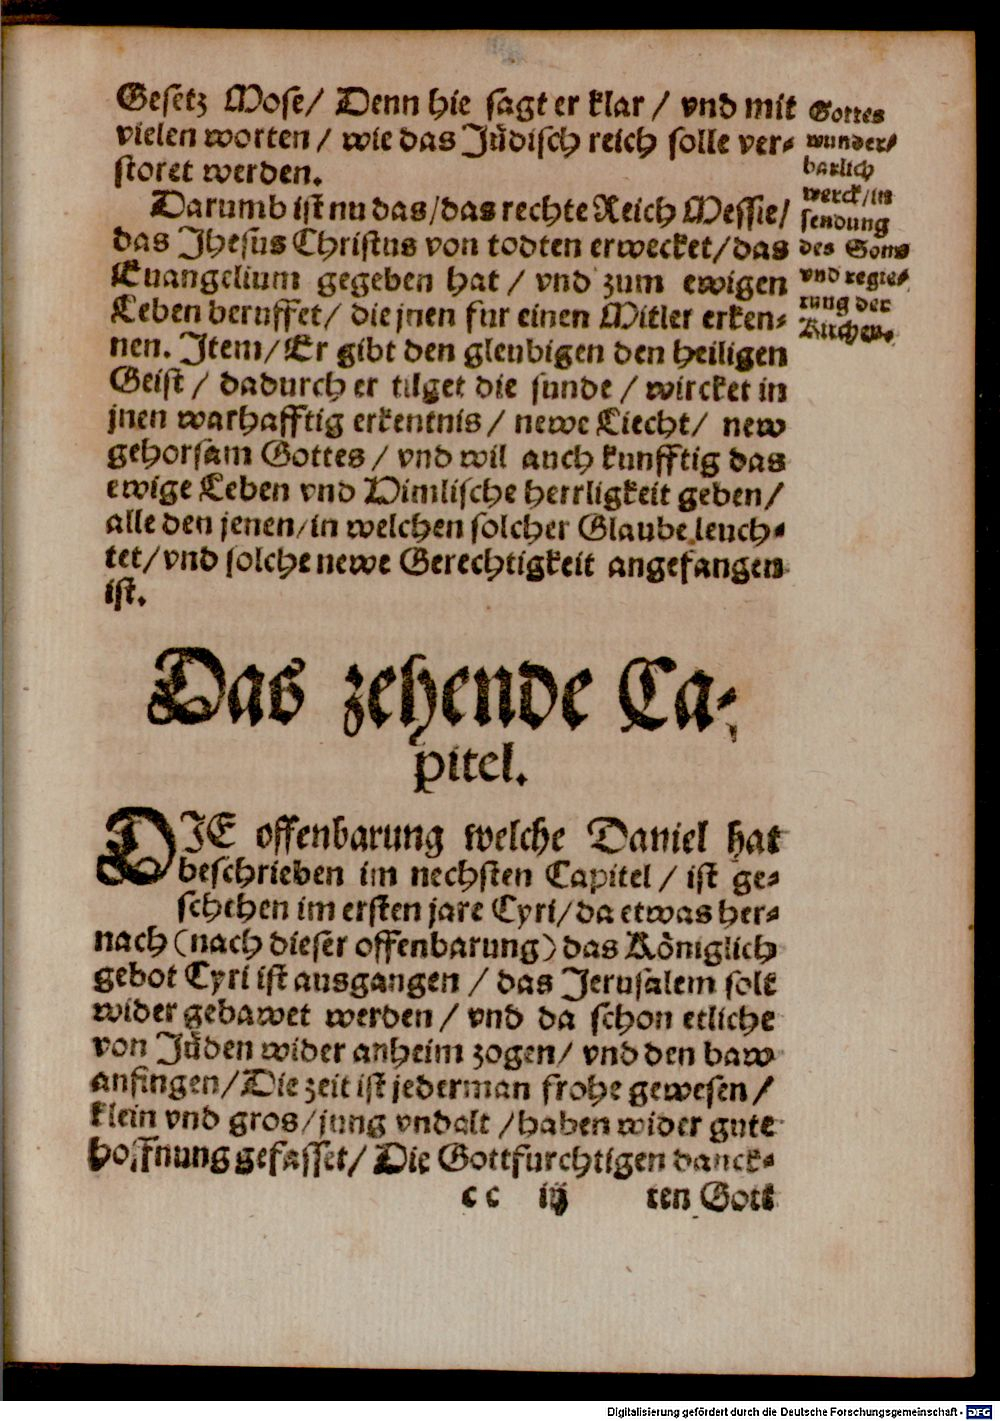 Gesetz Mose/ Denn hie sagt er klar / vnd mit
vielen worten / wie das Jüdisch reich solle ver-
storet werden.
Darumb ist nu das/das rechte Reich Messie/
das Jhesus Christus von todten erwecket/das
Euangelium gegeben hat / vnd zum ewigen
Leben beruffet/ die jnen fur einen Mitler erken-
nen. Item/ Er gibt den gleubigen den heiligen
Geist / dadurch er tilget die sunde / wircket in
jnen warhafftig erkentnis / newe Liecht/ new
gehorsam Gottes / vnd wil auch kunfftig das
ewige Leben vnd Himlische herrligkeit geben/
alle den jenen/in welchen solcher Glaube leuch-
tet/vnd solche newe Gerechtigkeit angefangen
ist.
Gottes
wunder/
barlich
werck/in
sendung
des Sons
vnd regie-
rung der
Kirchen.
Das zehende Ca-
pitel.
DIE offenbarung welche Daniel hat
beschrieben im nechsten Capitel / ist ge-
schehen im ersten jare Cyri/da etwas her-
nach (nach dieser offenbarung) das Königlich
gebot Cyri ist ausgangen / das Jerusalem solt
wider gebawet werden / vnd da schon etliche
von Jüden wider anheim zogen/ vnd den baw
anfingen/Die zeit ist jederman frohe gewesen/
klein vnd gros/jung vnd alt /haben wider gute
hoffnung gefasset/ Die Gottfurchtigen danck-
cc iij ten Gott
Digitalisierung gefördert durch die Deutsche Forschungsgemeinschaft - DFG